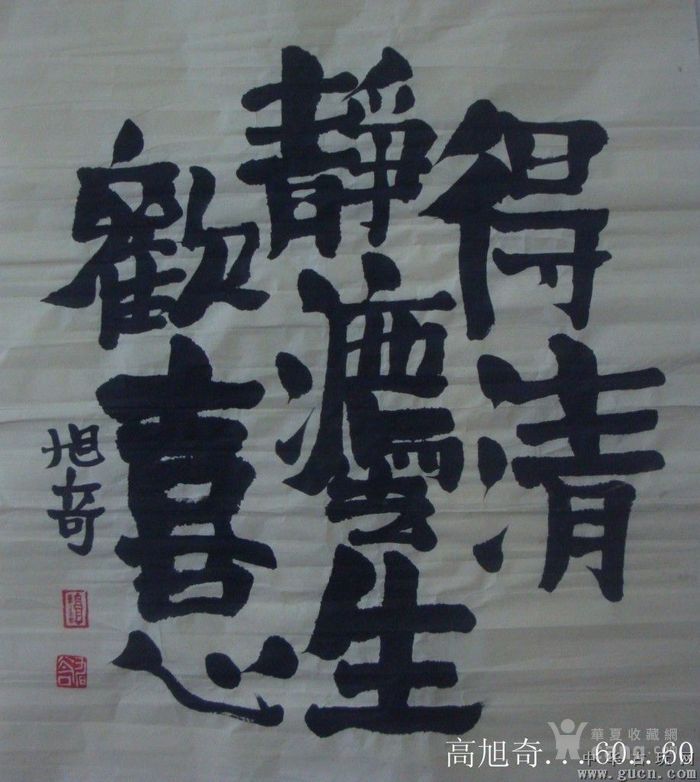 得清
靜生
歡喜心
旭奇
高旭奇...60...60
華夏收藏網
www.gucn.com